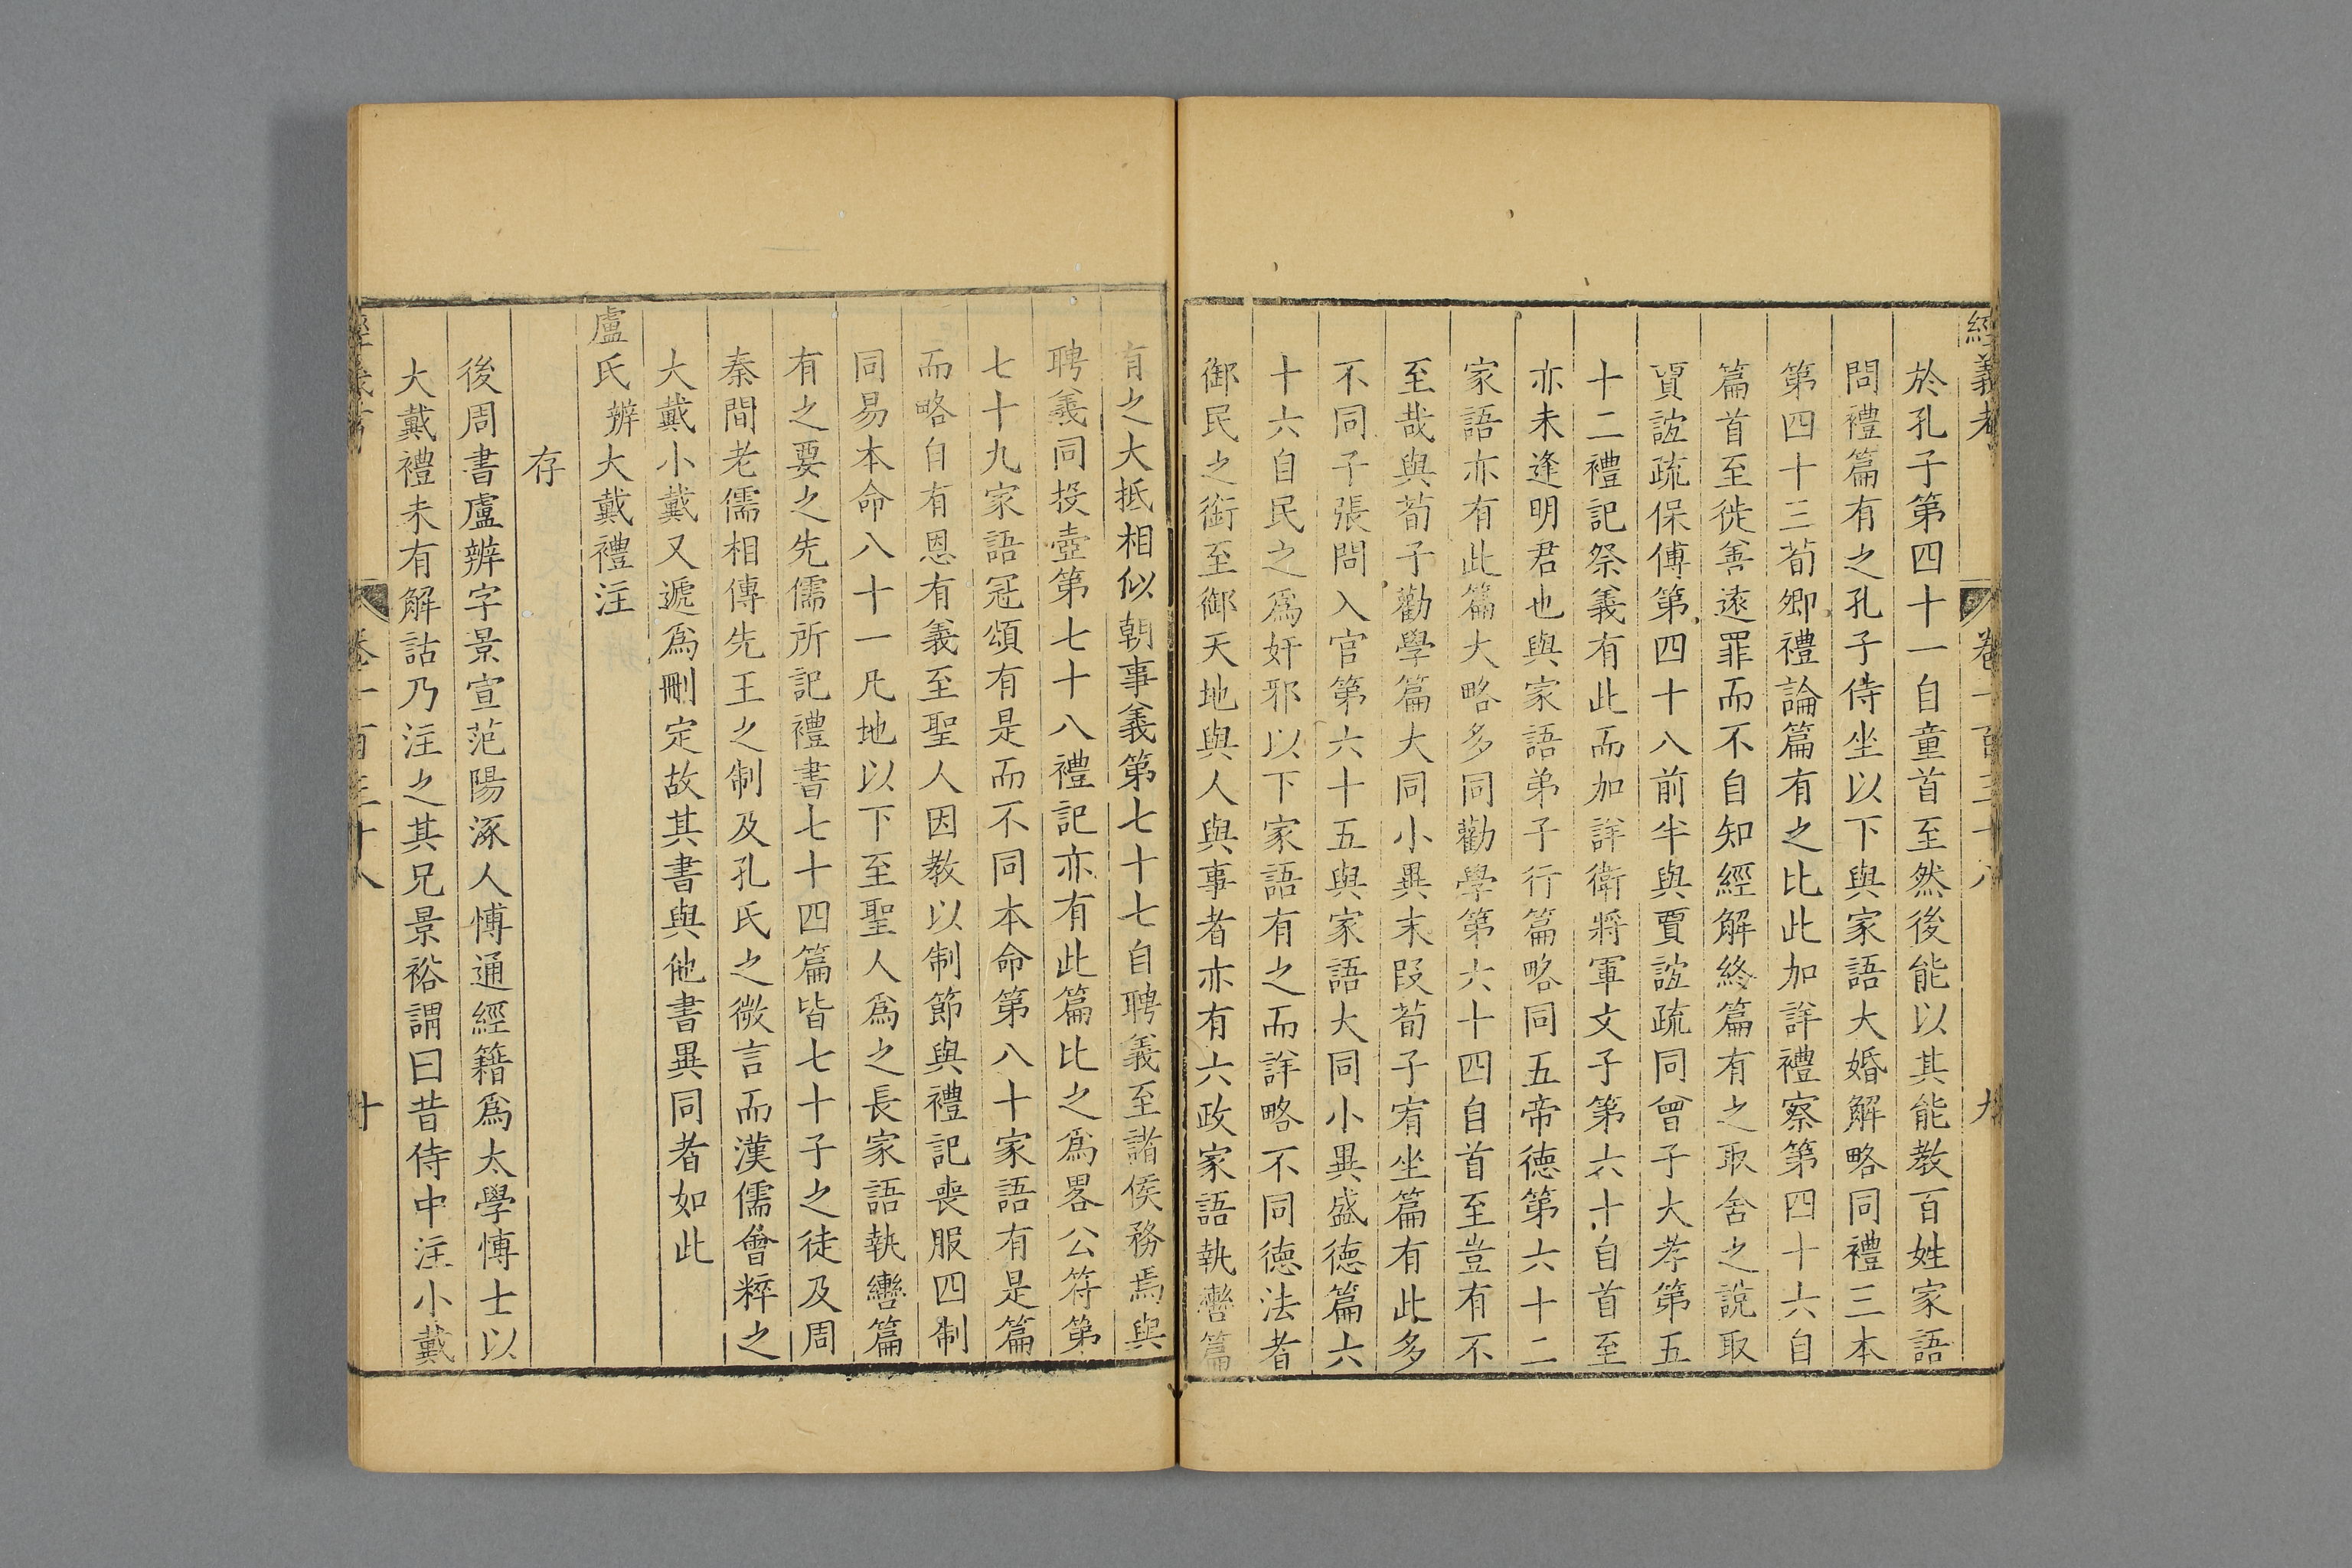 經義考 卷一百三十八 九
於孔子第四十一自童首至然後能以其能教百姓家語
問禮篇有之孔子侍坐以下與家語大婚解略同禮三本
第四十三荀卿禮論篇有之比此加詳禮察第四十六自
篇首至徙善遠罪而不自知經解終篇有之取舍之說取
賈誼疏保傅第四十八前半與賈誼疏同曾子大孝第五
十二禮記祭義有此而加詳衛將軍文子第六十自首至
亦未逢明君也與家語弟子行篇略同五帝德第六十二
家語亦有此篇大略多同勸學第六十四自首至豈有不
至哉與荀子勸學篇大同小異末段荀子宥坐篇有此多
不同子張問入官第六十五與家語大同小異盛德篇六
十六自民之爲奸邪以下家語有之而詳略不同德法者
御民之銜至御天地與人與事者亦有六政家語執轡篇
有之大抵相似朝事義第七十七自聘義至諸侯務焉與
聘義同投壺第七十八禮記亦有此篇比之爲畧公符第
七十九家語冠頌有是而不同本命第八十家語有是篇
而略自有恩有義至聖人因教以制節與禮記喪服四制
同易本命八十一凡地以下至聖人爲之長家語執轡篇
有之要之先儒所記禮書七十四篇皆七十子之徒及周
秦間老儒相傳先王之制及孔氏之微言而漢儒會粹之
大戴小戴又遞爲刪定故其書與他書異同者如此
盧氏辨大戴禮注
存
後周書盧辨字景宣范陽涿人博通經籍爲太學博士以
大戴禮未有解詁乃注之其兄景裕謂曰昔侍中注小戴
經義考 卷一百三十八 十